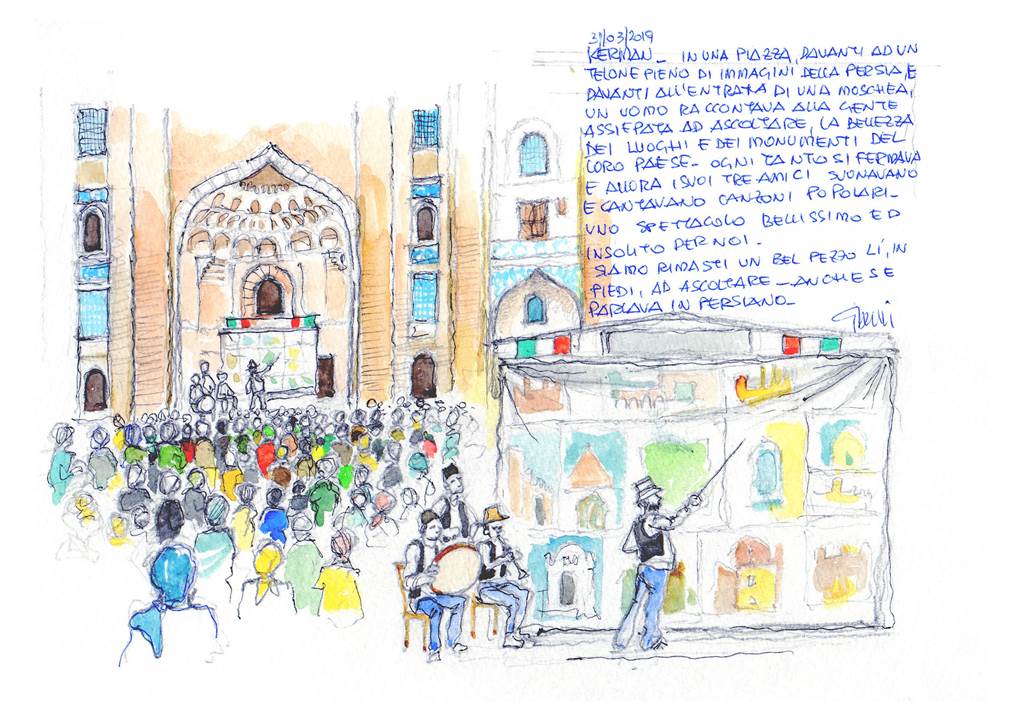 31/03/2019
KERMAN_ IN UNA PIAZZA, DAVANTI AD UN
TELONE PIENO DI IMMAGINI DELLA PERSIA, E
DAVANTI ALL'ENTRATA DI UNA MOSCHEA,
UN UOMO RACCONTAVA ALLA GENTE
ASSIEPATA AD ASCOLTARE, LA BELLEZZA
DEI LUOGHI E DEI MONUMENTI DEL
LORO PAESE_ OGNI TANTO SI FERMAVA
E ALLORA I SUOI TRE AMICI SUONAVANO
E CANTAVANO CANZONI POPOLARI_
UNO SPETTACOLO BELLISSIMO ED
INSOLITO PER NOI_
SIAMO RIMASTI UN BEL PEZZO LÍ, IN
PIEDI, AD ASCOLTARE_ANCHE SE
PARLAVA IN PERSIANO_